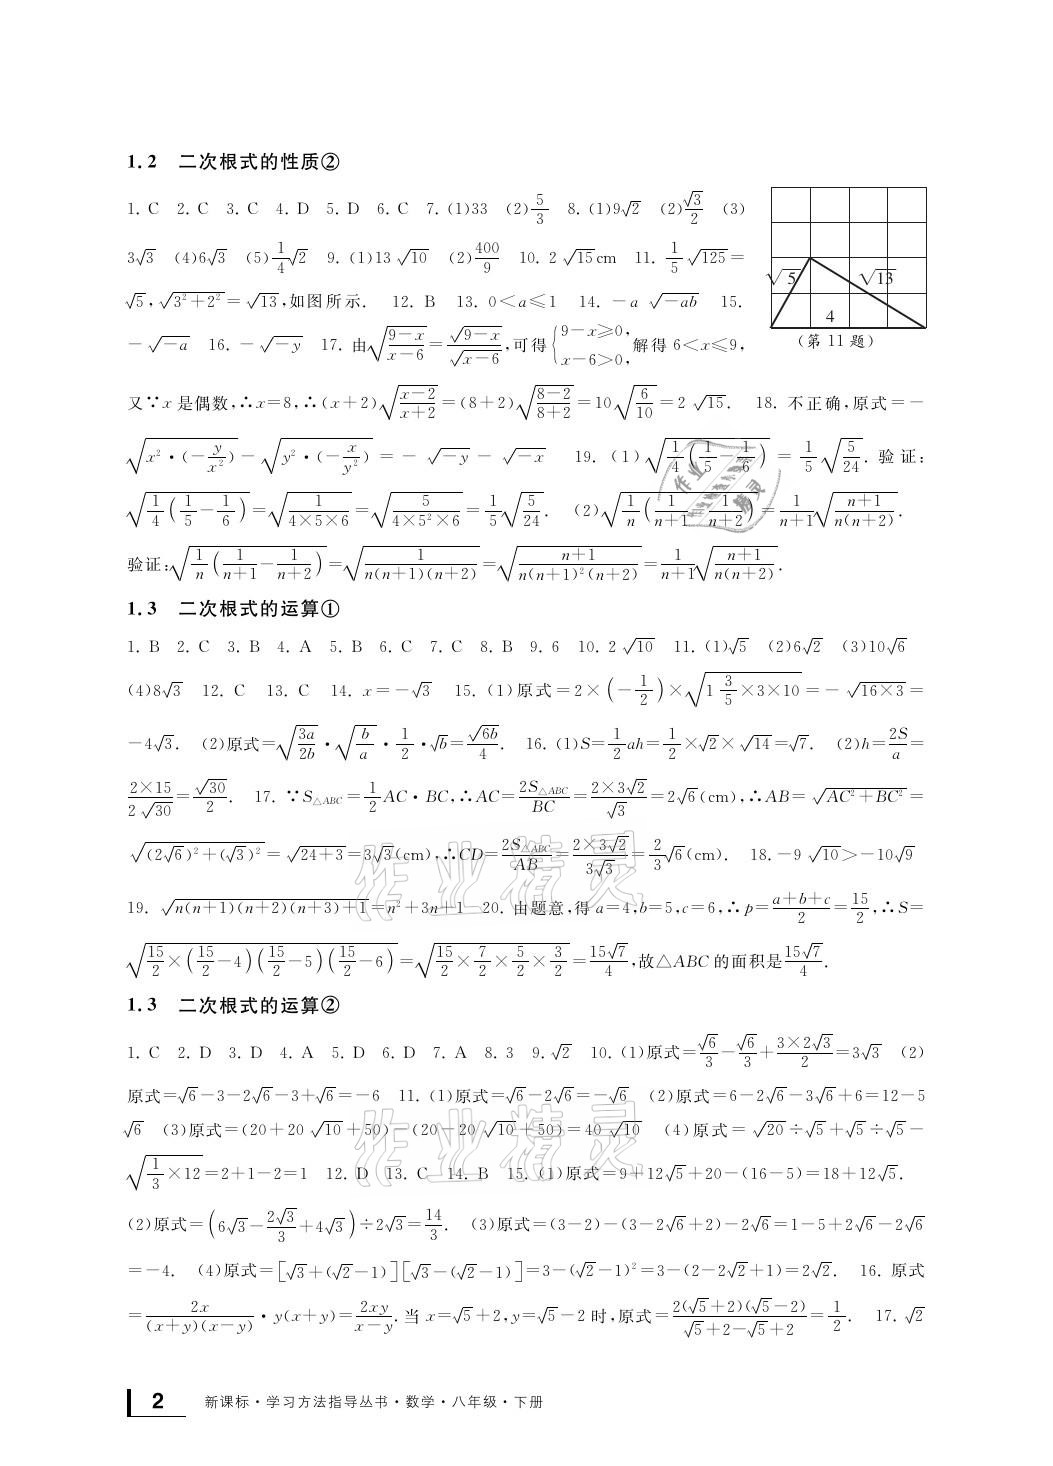 1.2 二次根式的性质②
1. C 2. C 3. C 4. D 5. D 6. C 7. (1)33 (2)5/3 8. (1)9√2 (2)√3/2 (3)
3√3 (4)6√3 (5)1/4√2 9. (1)13√10 (2)400/9 10. 2√15cm 11. 1/5√125=
√5,√(3²+2²)=√13,如图所示. 12. B 13. 0<a≤1 14. -a√-ab 15.
-√-a 16. -√-y 17. 由√((9-x)/(x-6))=√(9-x)/√(x-6),可得{9-x≥0, x-6>0,解得6<x≤9,
√5 √13
4
(第11题)
又∵x是偶数,∴x=8,∴(x+2)√((x-2)/(x+2))=(8+2)√((8-2)/(8+2))=10√(6/10)=2√15. 18. 不正确,原式=-
√(x²·(-y/x²))-√(y²·(-x/y²))=-√-y-√-x 19. (1)√(1/4(1/5-1/6))=1/5√(5/24). 验证:
√(1/4(1/5-1/6))=√(1/(4×5×6))=√(5/(4×5²×6))=1/5√(5/24). (2)√(1/n(1/(n+1)-1/(n+2)))=1/(n+1)√((n+1)/(n(n+2))).
验证:√(1/n(1/(n+1)-1/(n+2)))=√(1/(n(n+1)(n+2)))=√((n+1)/(n(n+1)²(n+2)))=1/(n+1)√((n+1)/(n(n+2))).
1.3 二次根式的运算①
1. B 2. C 3. B 4. A 5. B 6. C 7. C 8. B 9. 6 10. 2√10 11. (1)√5 (2)6√2 (3)10√6
(4)8√3 12. C 13. C 14. x=-√3 15. (1)原式=2×(-1/2)×√(1 3/5×3×10)=-√(16×3)=
-4√3. (2)原式=√(3a/2b)·√(b/a)·1/2·√b=√6b/4. 16. (1)S=1/2ah=1/2×√2×√14=√7. (2)h=2S/a=
2×15/2√30=√30/2. 17. ∵S△ABC=1/2AC·BC,∴AC=2S△ABC/BC=2×3√2/√3=2√6(cm),∴AB=√(AC²+BC²)=
√((2√6)²+(√3)²)=√(24+3)=3√3(cm),∴CD=2S△ABC/AB=2×3√2/3√3=2/3√6(cm). 18. -9√10>-10√9
19. √(n(n+1)(n+2)(n+3)+1)=n²+3n+1 20. 由题意,得a=4,b=5,c=6,∴p=(a+b+c)/2=15/2,∴S=
√(15/2×(15/2-4)(15/2-5)(15/2-6))=√(15/2×7/2×5/2×3/2)=15√7/4,故△ABC的面积是15√7/4.
1.3 二次根式的运算②
1. C 2. D 3. D 4. A 5. D 6. D 7. A 8. 3 9. √2 10. (1)原式=√6/3-√6/3+3×2√3/2=3√3 (2)
原式=√6-3-2√6-3+√6=-6 11. (1)原式=√6-2√6=-√6 (2)原式=6-2√6-3√6+6=12-5
√6 (3)原式=(20+20√10+50)-(20-20√10+50)=40√10 (4)原式=√20÷√5+√5÷√5-
√(1/3×12)=2+1-2=1 12. D 13. C 14. B 15. (1)原式=9+12√5+20-(16-5)=18+12√5.
(2)原式=(6√3-2√3/3+4√3)÷2√3=14/3. (3)原式=(3-2)-(3-2√6+2)-2√6=1-5+2√6-2√6
=-4. (4)原式=[√3+(√2-1)][√3-(√2-1)]=3-(√2-1)²=3-(2-2√2+1)=2√2. 16. 原式
=2x/((x+y)(x-y))·y(x+y)=2xy/(x-y). 当x=√5+2,y=√5-2时,原式=2(√5+2)(√5-2)/(√5+2-√5+2)=1/2. 17. √2
2 新课标·学习方法指导丛书·数学·八年级·下册
作业精灵
作业精灵
作业精灵